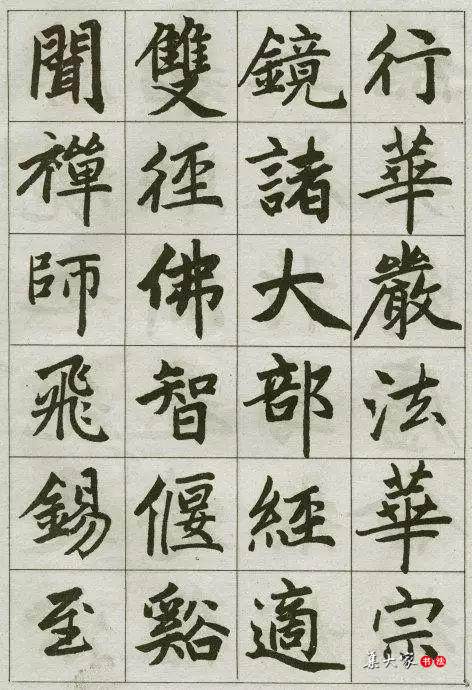 行華嚴法華宗
鏡諸大部經適
雙徑佛智偃谿
聞禪師飛錫至
集大家书法